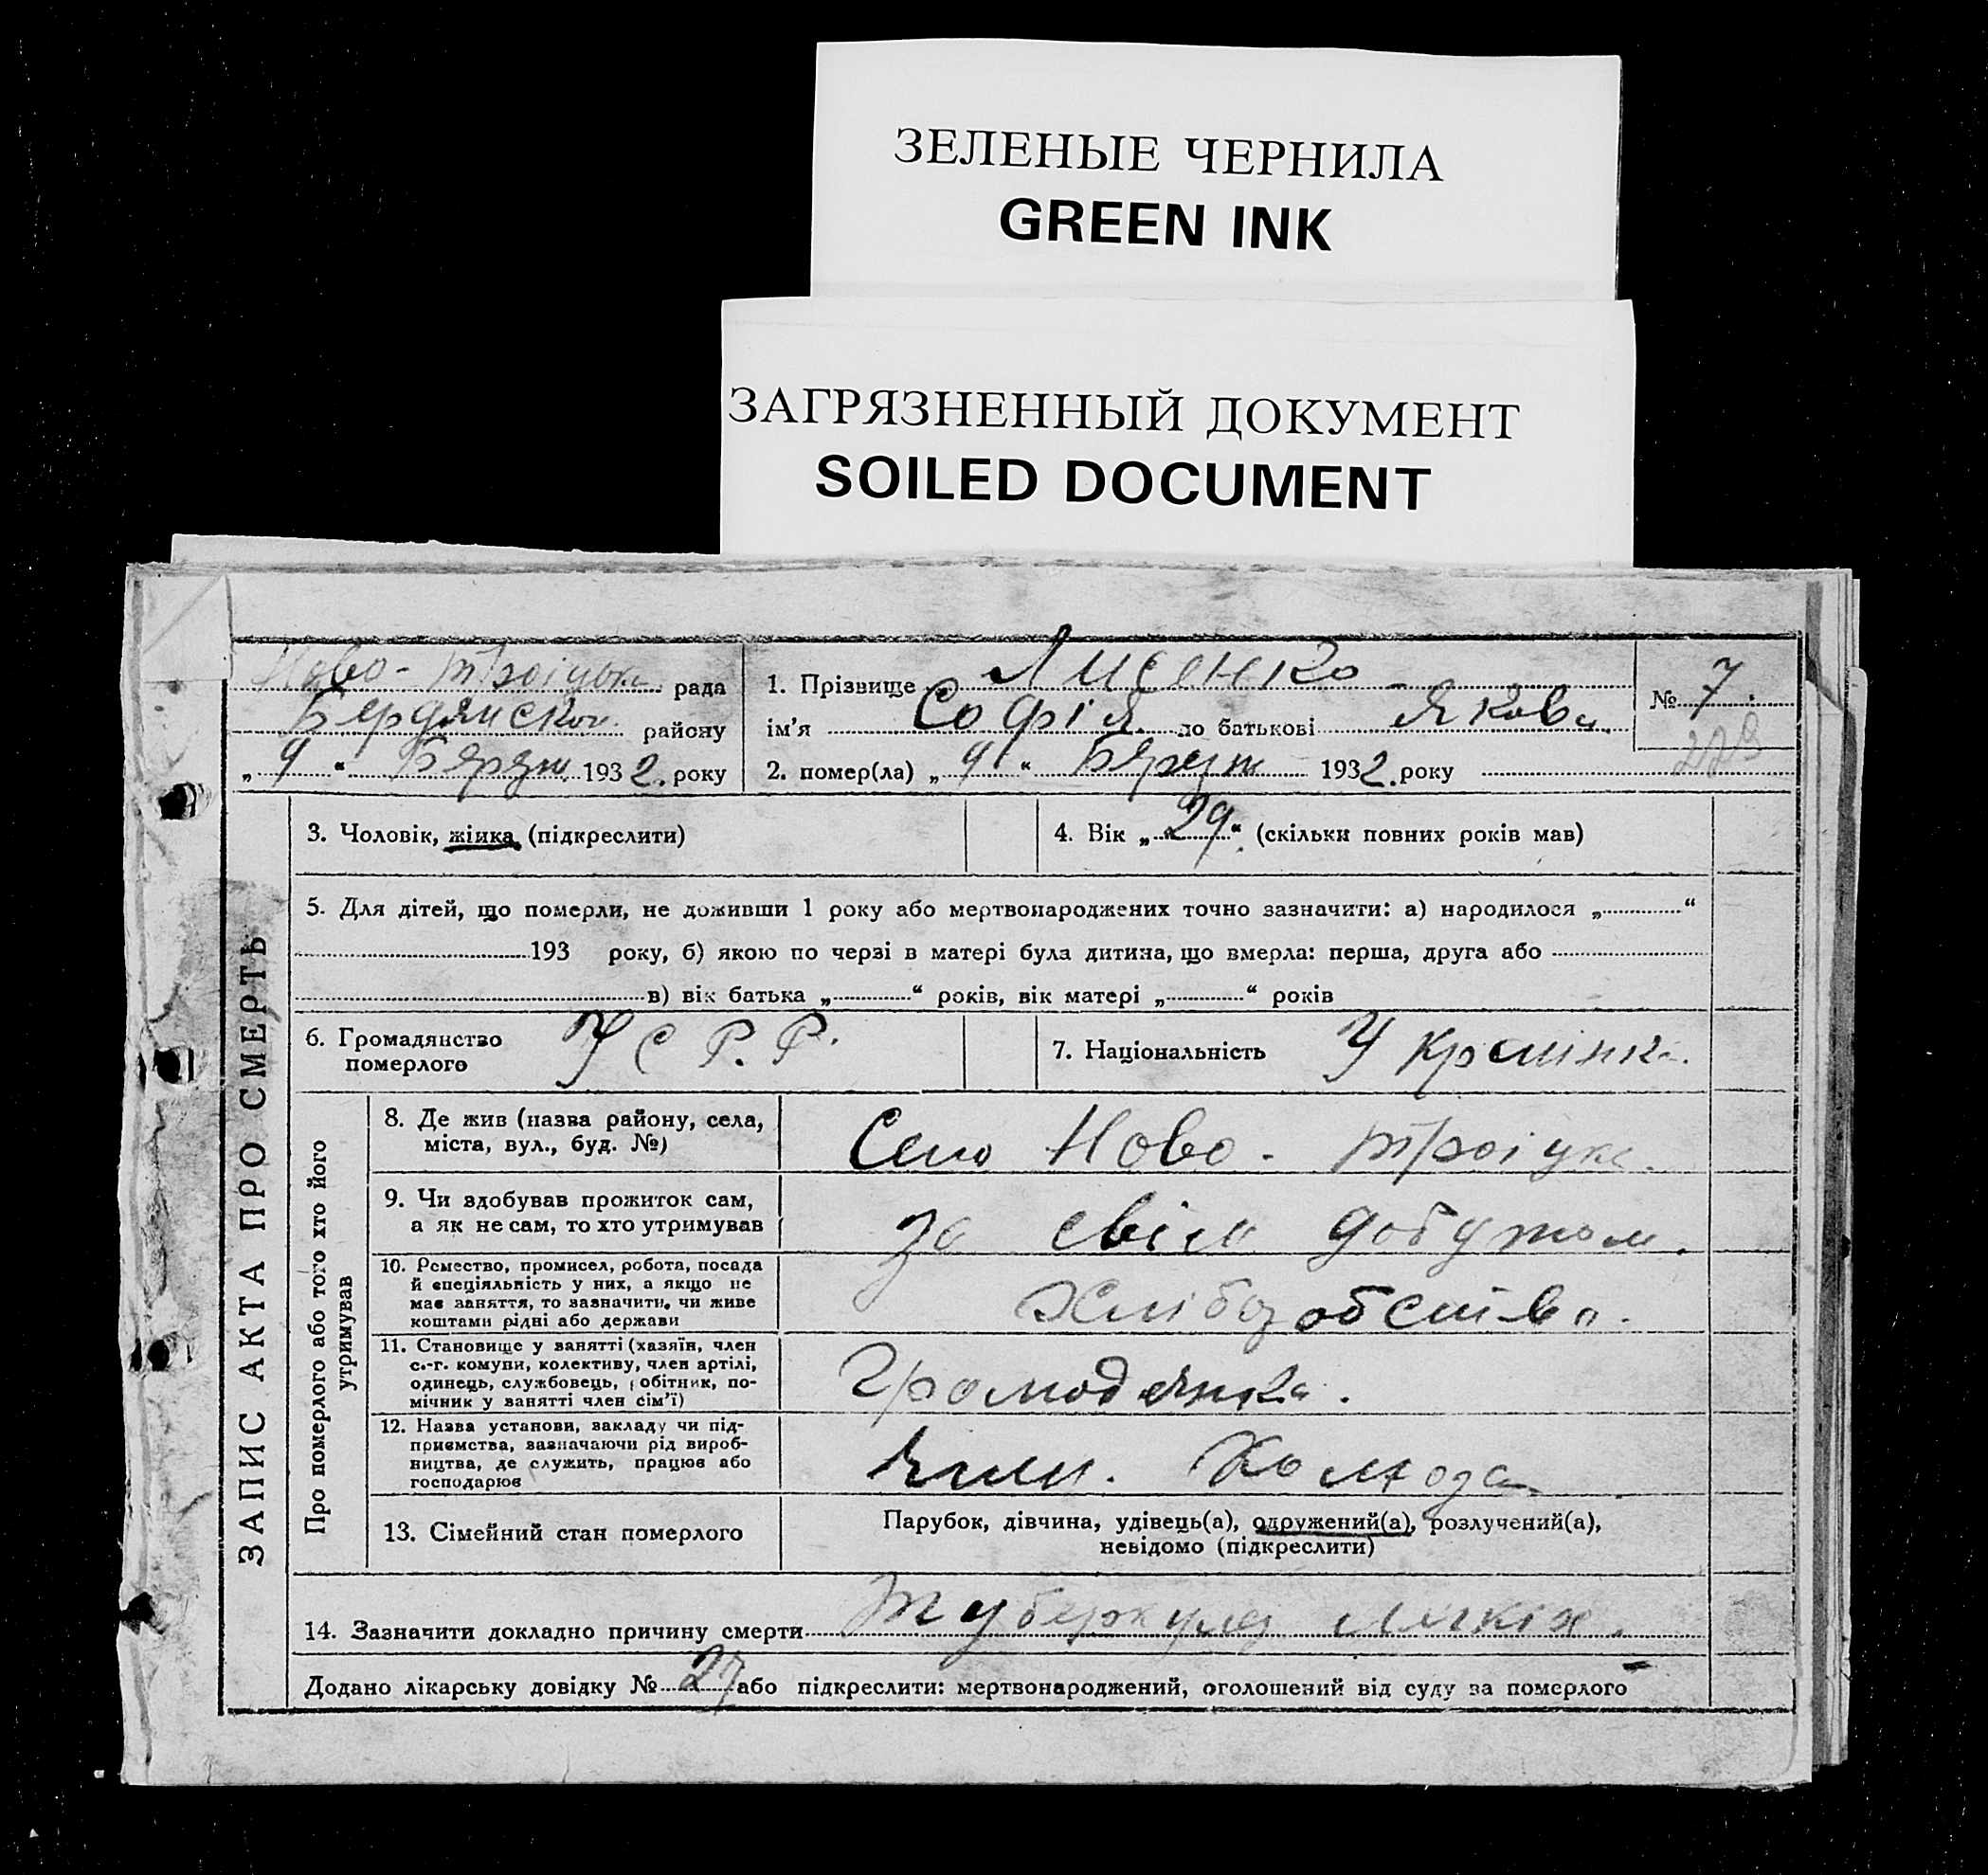 ЗЕЛЕНЫЕ ЧЕРНИЛА
GREEN INK
ЗАГРЯЗНЕННЫЙ ДОКУМЕНТ
SOILED DOCUMENT
Ново-троіцька рада
Бердянског. району
„ 9 “ Березн. 1932. року
1. Прізвище Лисенко
ім'я Софія по батькові Якові.
2. помер(ла) „ 9 “ Березн 1932. року
№ 7.
ЗАПИС АКТА ПРО СМЕРТЬ
3. Чоловік, жінка (підкреслити)
4. Вік „ 29 “ (скільки повних років мав)
5. Для дітей, що померли, не доживши 1 року або мертвонароджених точно зазначити: а) народилося „ “
193 року, б) якою по черзі в матері була дитина, що вмерла: перша, друга або
в) вік батька „ “ років, вік матері „ “ років
6. Громадянство
померлого У С Р. Р.
7. Національність Українка.
Про померлого або того хто його
утримував
8. Де жив (назва району, села,
міста, вул., буд. №)
Село Ново-троіцке.
9. Чи здобував прожиток сам,
а як не сам, то хто утримував
за свім добутком.
10. Ремество, промисел, робота, посада
й спеціяльність у них, а якщо не
має заняття, то зазначити, чи живе
коштами рідні або держави
11. Становище у занятті (хазяїн, член
с.-г. комуни, колективу, член артілі,
одинець, службовець, робітник, по-
мічник у занятті член сім'ї)
Громодянка.
12. Назва установи, закладу чи під-
приємства, зазначаючи рід вироб-
ництва, де служить, працює або
господарює
13. Сімейний стан померлого
Парубок, дівчина, удівець(а), одружений(а), розлучений(а),
невідомо (підкреслити)
14. Зазначити докладно причину смерти Туберкулез легкіх.
Додано лікарську довідку № 27 або підкреслити: мертвонароджений, оголошений від суду за померлого